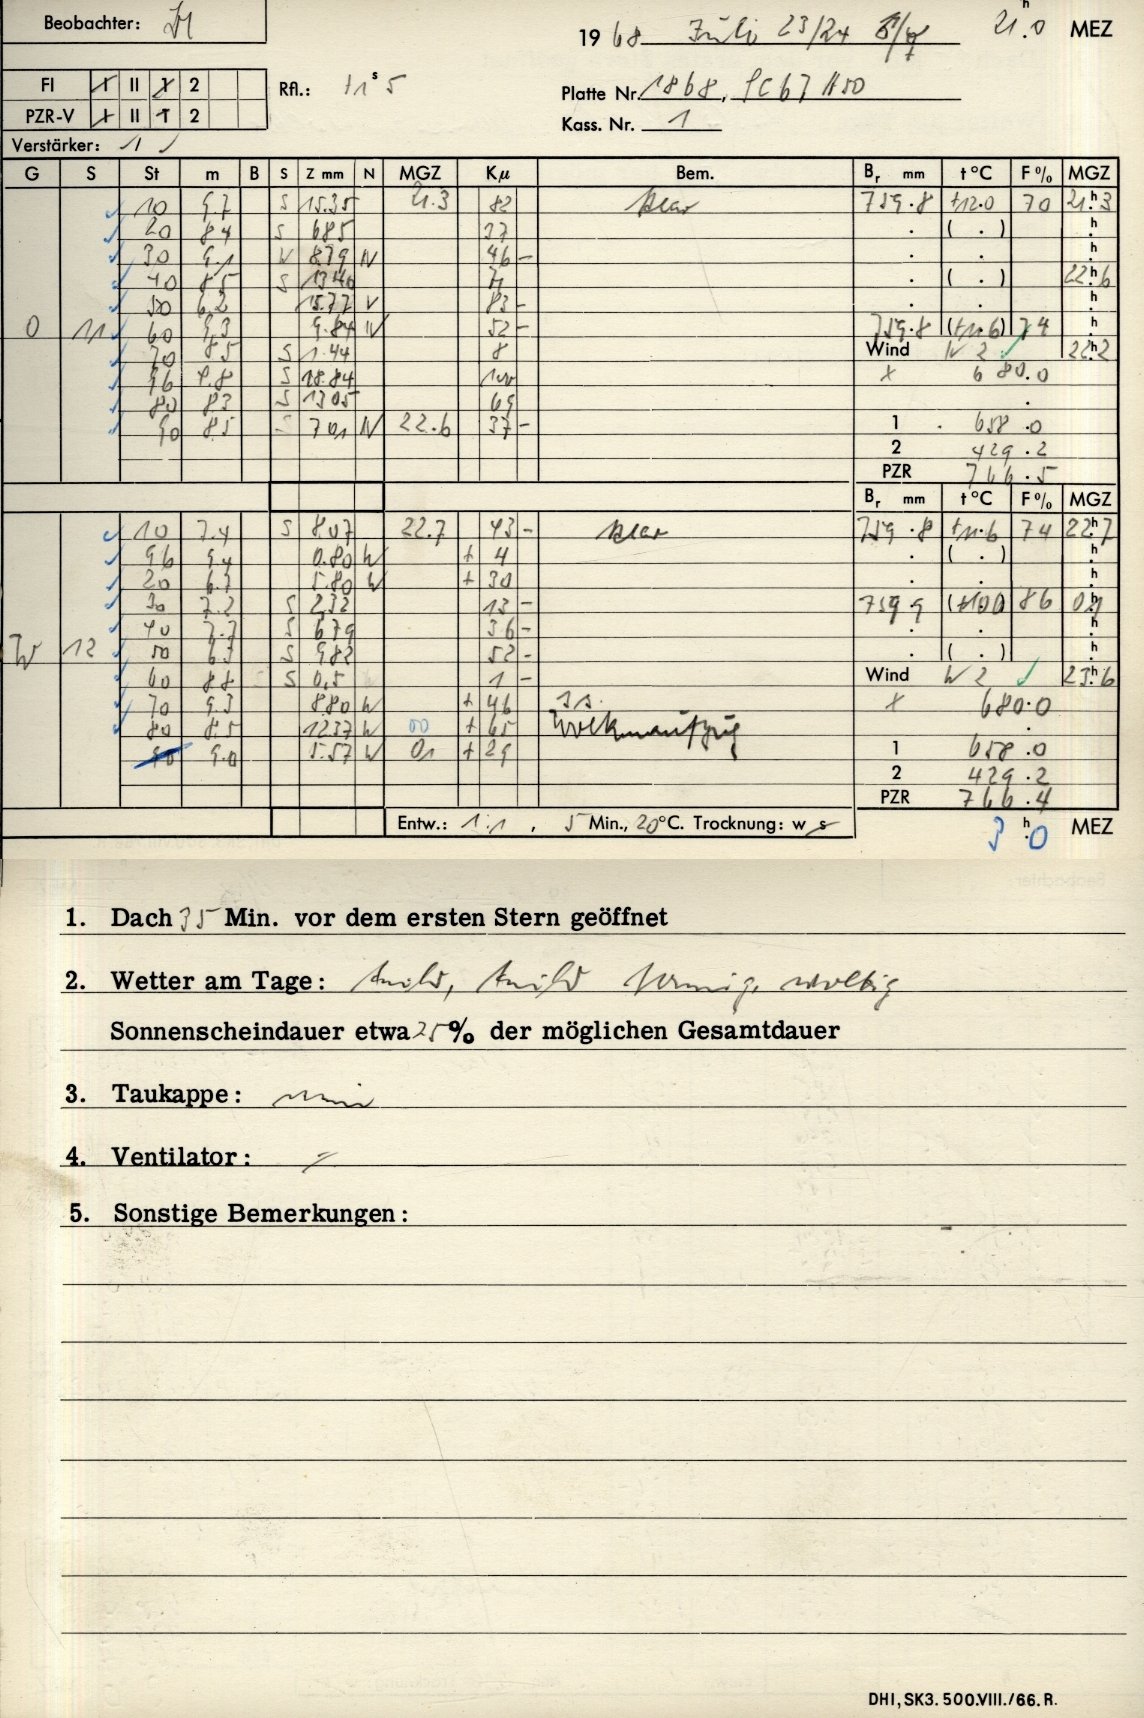 Beobachter:
1968 Juli 23/24 21h.0 MEZ
FI I II 1 2 Rfl.: +1s5 Platte Nr. 1868, SC67 H50
PZR-V I II 1 2 Kass. Nr. 1
Verstärker: 1
G S St m B S Z mm N MGZ Kμ Bem. Br mm t °C F % MGZ
10 9.7 S 15.35 21.3 82 klar 759.8 +12.0 70 21h3
20 8.4 S 6.85 37 . ( . ) h
30 9.1 W 8.79 W 46 - . . h
40 8.5 S 13.40 71 . ( . ) 22h6
50 6.2 15.77 V 83 - . . h
O 11 60 9.3 9.84 W 52 - 759.8 (+11.6) 74 h
70 8.5 S 1.44 8 Wind W 2 22h2
96 S 18.84 100 x 680.0
80 8.3 S 13.05 69 .
90 8.5 S 7.01 W 22.6 37 - 1 658.0
2 429.2
PZR 766.5
Br mm t °C F % MGZ
10 7.4 S 8.07 22.7 43 - klar 759.8 +11.6 74 22h7
96 9.4 0.80 W + 4 . ( . ) h
20 6.7 5.80 W + 30 . . h
30 7.2 S 2.32 13 - 759.9 (+10.0) 86 0h1
40 7.7 S 6.79 36 - . . h
W 12 50 6.7 S 9.82 52 - . ( . ) h
60 8.8 S 0.5 1 - Wind W 2 23h6
70 9.3 8.80 W + 46 x 680.0
80 8.5 12.37 W 00 + 65 Wolkenaufzug .
90 9.0 5.57 W 01 + 29 1 658.0
2 429.2
PZR 766.4
Entw.: 1:1, 5 Min., 20°C. Trocknung: w s 3h.0 MEZ
1. Dach 35 Min. vor dem ersten Stern geöffnet
2. Wetter am Tage: wolkig
Sonnenscheindauer etwa 25% der möglichen Gesamtdauer
3. Taukappe: nein
4. Ventilator:
5. Sonstige Bemerkungen:
DHI, SK3. 500.VIII./66. R.